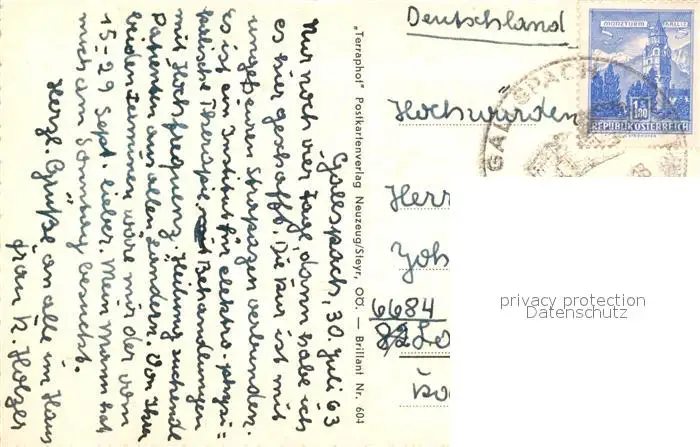 Gallspach, 30. Juli 63
Nur noch vier Tage, dann habe ich
es hier geschafft. Die Kur ist mit
ungeheuren Strapazen verbunden.
Es ist ein Institut für elektro-physi=
kalische Therapie. Behandlungen
mit Hochfrequenz. Heilung suchende
Patienten aus allen Ländern. Von Ihren
beiden Terminen wäre mir der vom
15-29 Sept. lieber. Mein Mann hat
mich am Sonntag besucht.
Herzl. Grüße an alle im Haus
Frau K. Holzer
"Terraphot" Postkartenverlag Neuzeug/Steyr, OÖ. — Brillant Nr. 604
Deutschland
Hochwürden
Herr
Joh
6684
82
MÜNZTURM HALL i.T.
1.80
REPUBLIK ÖSTERREICH
GALLSPACH
privacy protection
Datenschutz